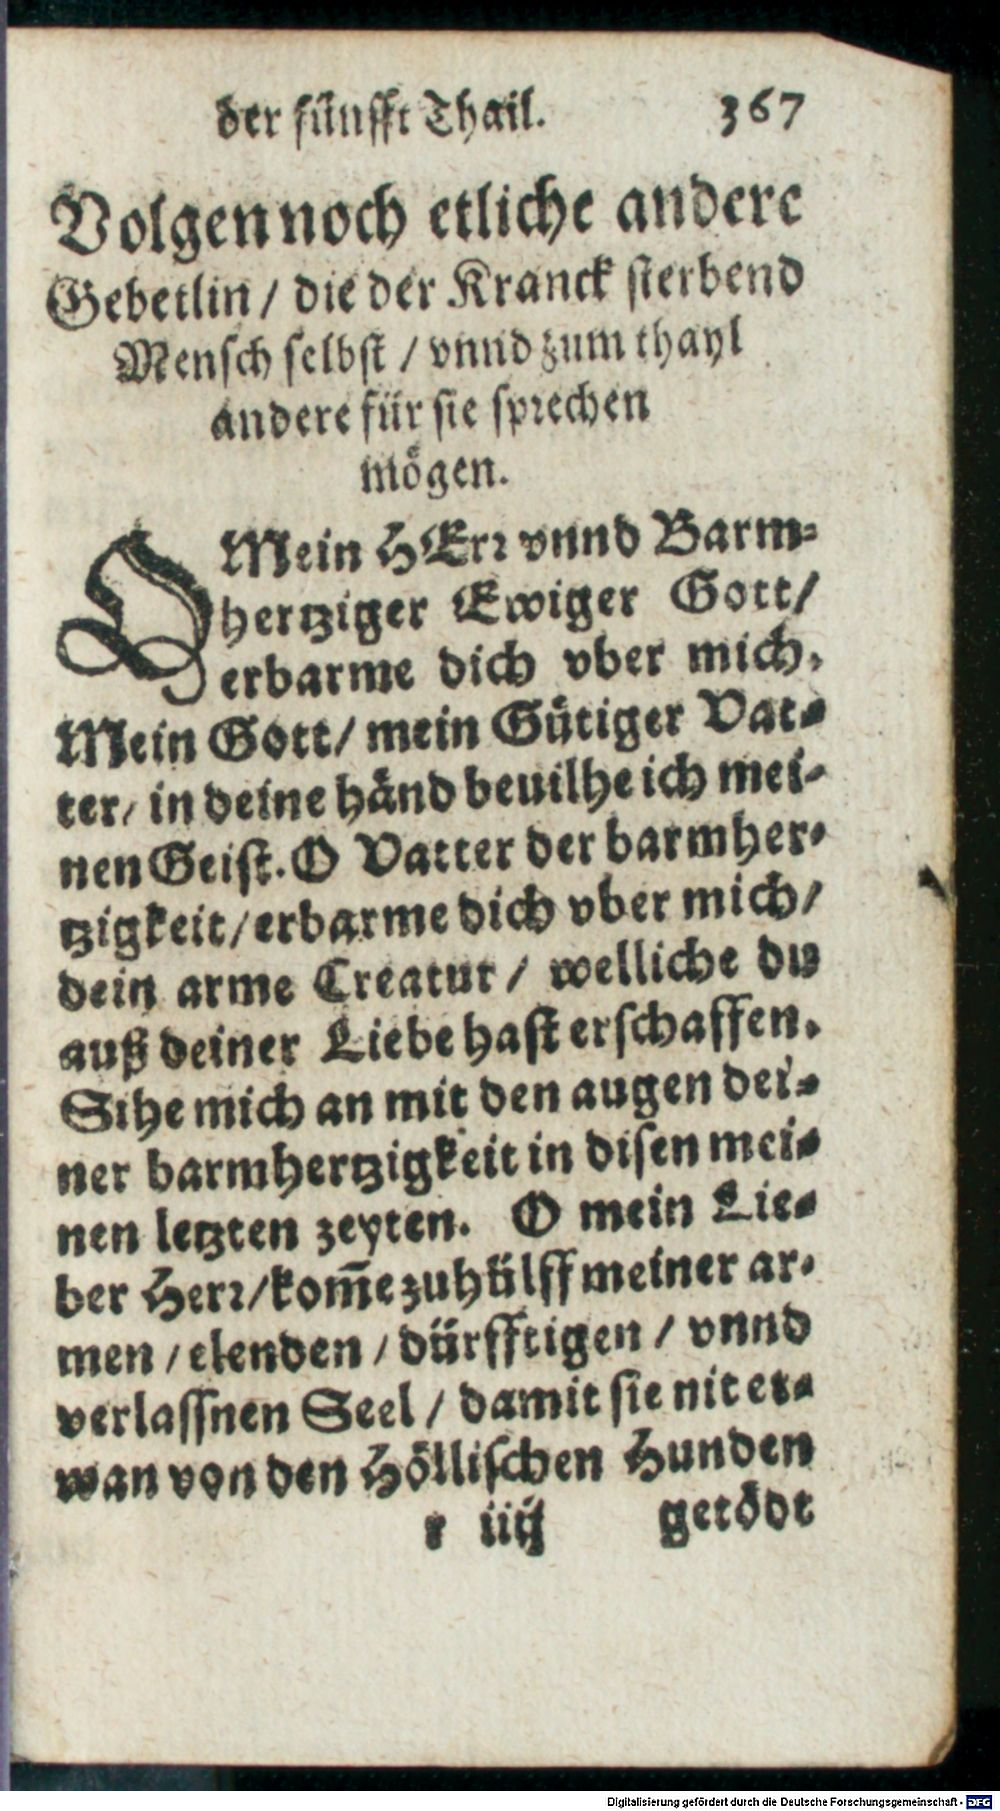 der fünfft Thail. 367
Volgen noch etliche andere
Gebetlin / die der Kranck sterbend
Mensch selbst / vnnd zum thayl
andere für sie sprechen
mögen.
O Mein HErr vnnd Barm-
hertziger Ewiger Gott/
erbarme dich vber mich.
Mein Gott/ mein Gütiger Vat-
ter/ in deine händ beuilhe ich mei-
nen Geist. O Vatter der barmher-
tzigkeit/ erbarme dich vber mich/
dein arme Creatur / welliche du
auß deiner Liebe hast erschaffen.
Sihe mich an mit den augen dei-
ner barmhertzigkeit in disen mei-
nen letzten zeyten. O mein Lie-
ber Herr/ kom̄e zuhülff meiner ar-
men / elenden / dürfftigen / vnnd
verlassnen Seel / damit sie nit et-
wan von den Höllischen Hunden
r iiij getödt
Digitalisierung gefördert durch die Deutsche Forschungsgemeinschaft - DFG